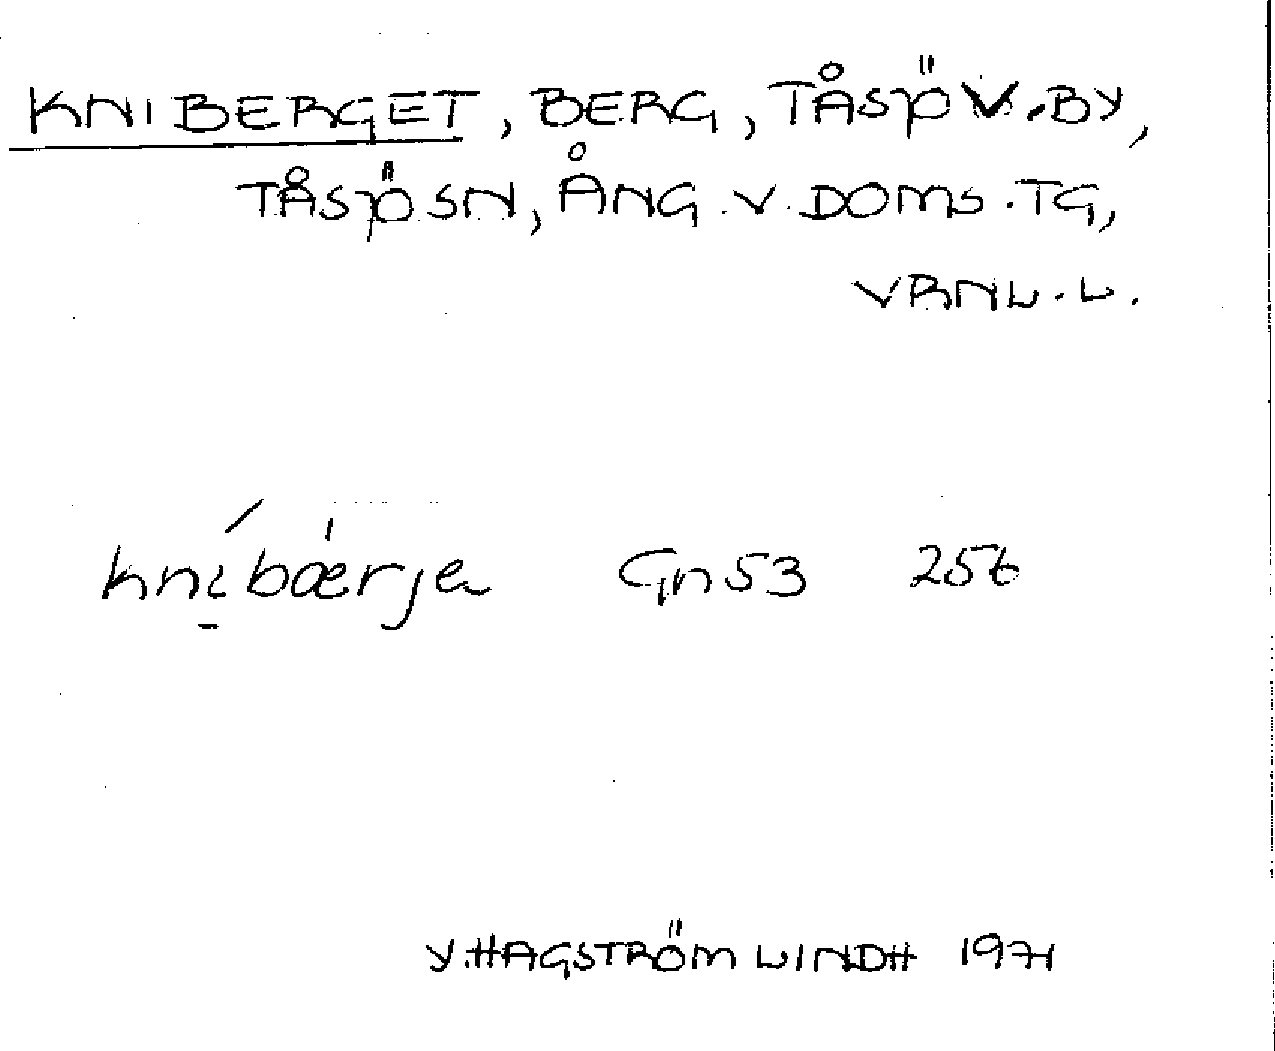 KNIBERGET, BERG, TÅSJÖ V. BY,
TÅSJÖ SN, ÅNG. V. DOMS. TG,
VRNL. L.
knibærja Gn53 256
Y. HAGSTRÖM LINDH 1971